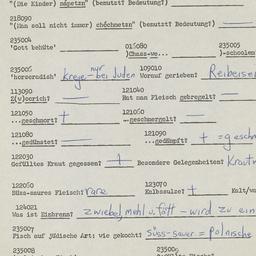 "(Die Kinder) nägetzn" (benutzt? Bedeutung?)
218090
"(Man soll nicht immer) chöchetzn" (benutzt? Bedeutung?)
235004
'Gott behüte' 016080 235005
)Chass-we... )-schoolen
235006 109010
'horseradish' kreye-nur bei Juden Worauf gerieben? Reibeisen
113090 121040
Z(u)voricht? Hat man Fleisch gebregelt?
121050 121060
...geschmort? + ...geschmorgelt?
121080 121090
...gedünstet? ...gedämpft? + = geschm
122030
Gefülltes Kraut gegessen? + Besondere Gelegenheiten? Kraut
122060 123070
Süss-saures Fleisch? rare Kalbssulze? + Kalt/wa
124021
Was ist Einbrenn? zwiebel, mehl u. fett - wird zu ein
235007
Fisch auf jüdische Art: wie gekocht? süss-sauer = polnische
235008 235009